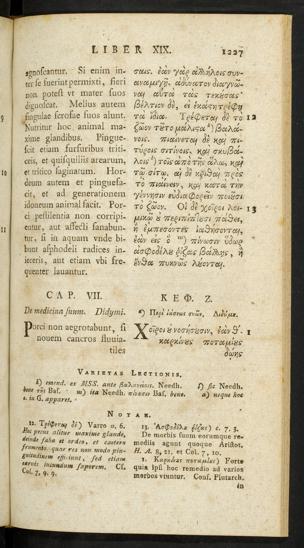 LIBER XIX. 1227
agnoscantur. Si enim in-
ter se fuerint permixti, fieri
non potest vt mater suos
dignoscat. Melius autem
singulae scrofae suos alunt.
Nutritur hoc animal ma-
xime glandibus. Pingue-
scit etiam furfuribus triti-
ceis, et quisquiliis arearum,
et tritico saginatum. Hor-
deum autem et pinguefa-
cit, et ad generationem
idoneum animal facit. Por-
ci pestilentia non corripi-
entur, aut affecti sanabun-
tur, si in aquam vnde bi-
bunt asphodeli radices in-
ieceris, aut etiam vbi fre-
quenter lauantur.
σεως. ἐὰν γὰρ ἀλλήλοις συν-
αναμιγῇ, ἀδύνατον διαγνῶ-
ναι αὐτὰ τὰς τεκούσας
βέλτιον δὲ, εἰ ἑκάστη τρέφῃ
τὰ ἴδια. Τρέφεται δὲ τὸ 12
ζῶον τῦτο μάλιστα βαλά-
νοις. πιαίνεται δὲ καὶ πι-
τύροις σιτίνοις, καὶ σκυβά-
λοις τοῖς ἀπὸ τῆς ἅλω, καὶ
τῷ σίτῳ. αἱ δὲ κριθαὶ πρὸς
τὸ πιαίνειν, καὶ κατὰ τὴν
γέννησιν εὐδιαφορεῖν ποιοῦσι
τὸ ζῶον. Οἱ δὲ χοῖροι λοι- 13
μικῷ ὐ περιπίπτουσι πάθει,
ἢ ἐμπεσόντες ἰαθήσονται,
ἐὰν εἰς ὃ πίνωσιν ὕδωρ
ἀσφοδέλου ῥίζας βάλῃς, ἢ
ἔνθα πυκνῶς λύονται.
CAP. VII.
De medicina suum. Didymi.
Porci non aegrotabunt, si
nouem cancros fluuia-
tiles
ΚΕΦ. Ζ.
Περὶ ἰάσεως συῶν. Διδύμου.
Χοῖροι ὐ νοσήσουσιν, ἐὰν θ 1
καρκίνους ποταμίους
δῷης
VARIETAS LECTIONIS.
emend. ex MSS. ante βαλανίοις. Needh.
bene τῆς Bas. m) ita Needh. Bas. bene.
s. in G. apparet.
sic Needh.
neque hoc
NOTAE.
12. Τρέφεται δὲ) Varro 2, 6.
Hoc pecus alitur maxime glande,
deinde faba et ordeo, et caetero
frumento, quae res non modo pin-
guitudinem efficiunt, sed etiam
carnis iucundum saporem. Cf.
Col. 7, 9, 9.
13. Ἀσφοδέλου ῥίζας) c. 7, 3.
De morbis suum eorumque re-
mediis agunt quoque Aristot.
H. A. 8, 21. et Col. 7, 10.
1. Καρκίνους ποταμίους) Forte
quia ipsi hoc remedio ad varios
morbos vtuntur. Conf. Plutarch.
in